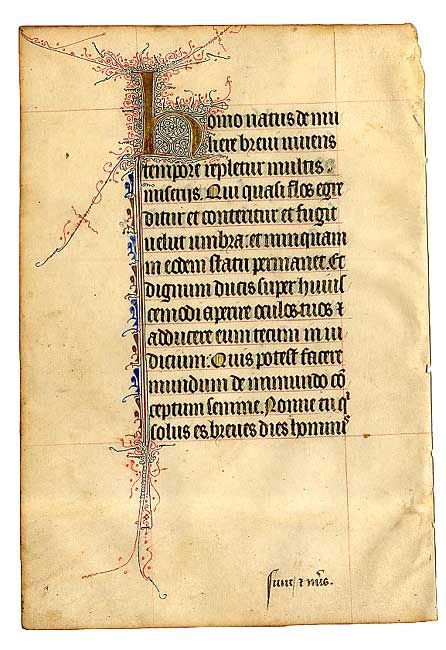 homo natus de mu
liere breui uiuens
tempore repletur multis
miserijs. Qui quasi flos egre
ditur et conteritur et fugit
uelut umbra: et nunquam
in eodem statu permanet. Et
dignum ducis super huius
cemodi aperire oculos tuos ⁊
adducere eum tecum in iu
dicium: Quis potest facere
mundum de inmundo cō
ceptum semine. Nonne tu qͥ
solus es. breues dies hominis
sunt ⁊